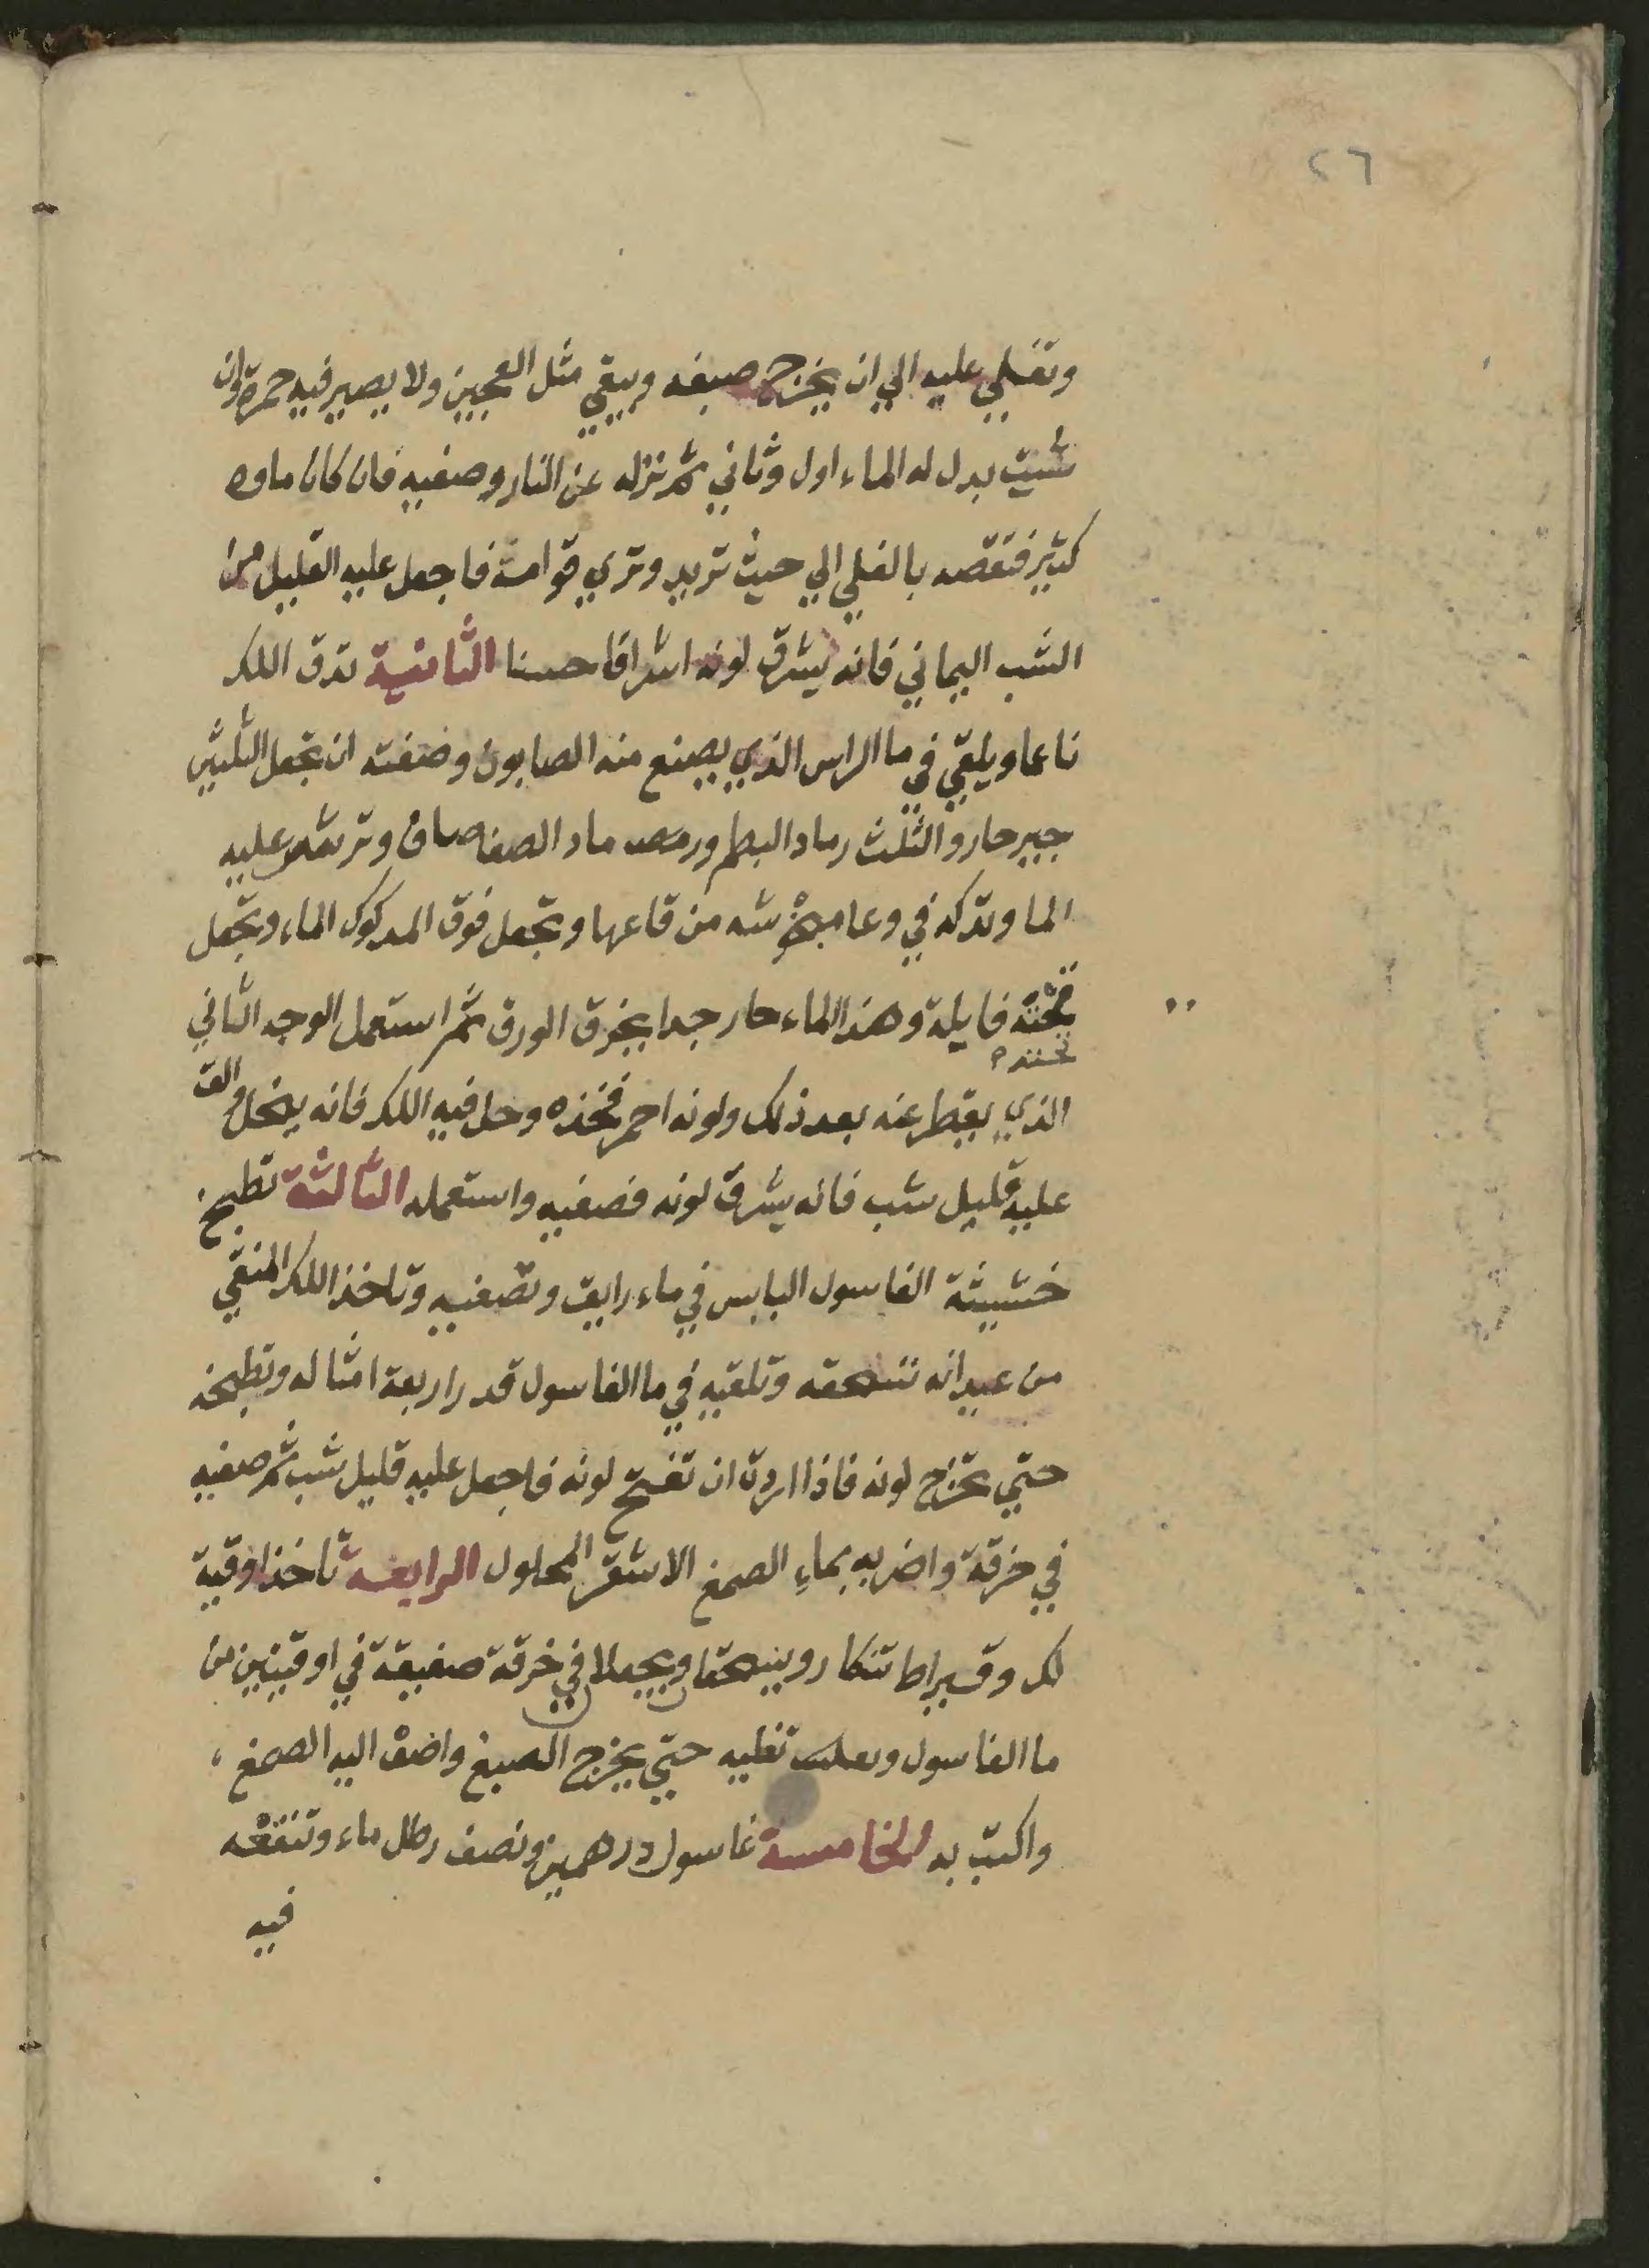 ٢٦
وتغلي عليه الي ان يخرج صبغه ويبقي مثل العجين ولا يصير فيه حمرة وان
شيت بدل له الماء اول وثاني ثم تنزله عن النار وصفيه فان كان ماوه
كثير فنقصه بالغلي الي حيث تريد وتري قوامه فاجعل عليه القليل من
الشب اليماني فانه يشرق لونه اشراقا حسنا الثانية تدق اللك
ناعما ويلقي في ما الراس الذي يصنع منه الصابون وصفته ان تجعل الثلثين
جير حار والثلث رماد البطم ماد الصفصاف وترش عليه
الما وتتركه في وعا من قاعها وتجعل فوق المدكوك الماء وتجعل
تحته وهذا الماء حار جدا يخرق الورق ثم استعمل الوجه الثاني
تحته
الذي يقطر عنه بعد ذلك ولونه احمر فخذه وحل فيه اللك فانه ينحل والق
عليه قليل شب فانه يشرق لونه فصفيه واستعمله الثالثة تطبخ
خشيشة الغاسول اليابس في ماء رايق وتصفيه وتاخذ اللك المنقي
من عيدانه تسحقه وتلقيه في ما الغاسول قدر اربعة امثاله وتطبخه
حتي يخرج لونه فاذا اردت ان تفتح لونه فاجعل عليه قليل شب ثم صفيه
في خرقة واضربه بماء الصمغ الاشقر المحلول الرابعة تاخذ اوقية
لك وقيراط تنكار وينسحقا ويجعلا في خرقة صفيقة في اوقيتين من
ما الغاسول تغليه حتي يخرج الصبغ واضف اليه الصمغ
واكتب به الخامسة غاسول درهمين ونصف رطل ماء وتنقعه
فيه